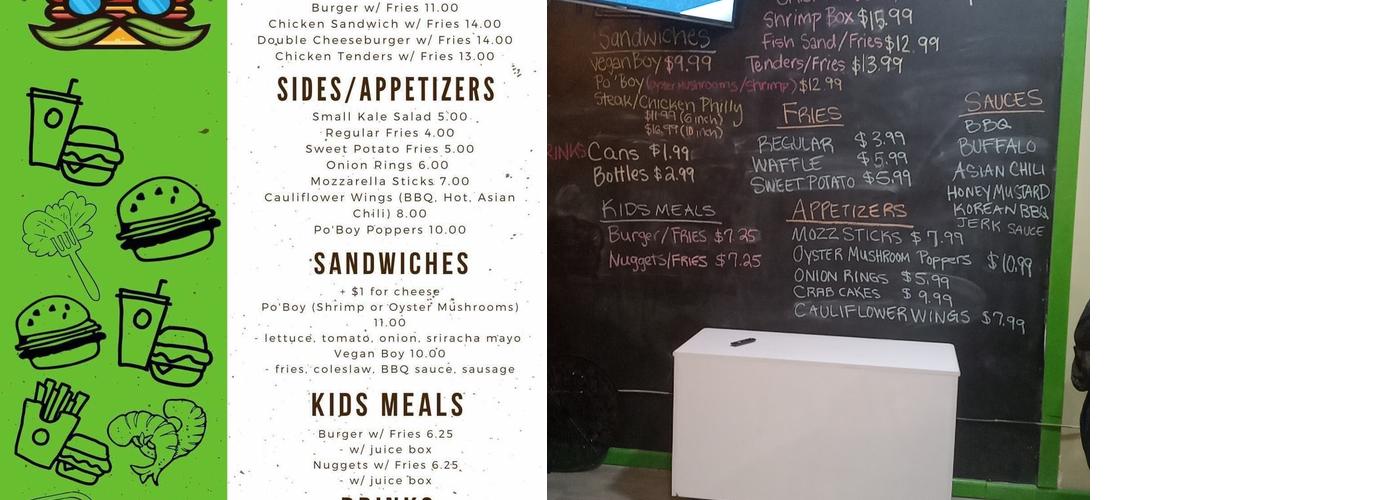 Burger w/ Fries 11.00
Chicken Sandwich w/ Fries 14.00
Double Cheeseburger w/ Fries 14.00
Chicken Tenders w/ Fries 13.00
SIDES/APPETIZERS
Small Kale Salad 5.00
Regular Fries 4.00
Sweet Potato Fries 5.00
Onion Rings 6.00
Mozzarella Sticks 7.00
Cauliflower Wings (BBQ, Hot, Asian
Chili) 8.00
Po'Boy Poppers 10.00
SANDWICHES
+ $1 for cheese
Po'Boy (Shrimp or Oyster Mushrooms)
11.00
- lettuce, tomato, onion, sriracha mayo
Vegan Boy 10.00
- fries, coleslaw, BBQ sauce, sausage
KIDS MEALS
Burger w/ Fries 6.25
- w/ juice box
Nuggets w/ Fries 6.25
- w/ juice box
DRINKS
Shrimp Box $15.99
Fish Sand/Fries $12.99
Tenders/Fries $13.99
Sandwiches
Vegan Boy $9.99
Po'Boy (Oyster Mushrooms/Shrimp) $12.99
Steak/Chicken Philly
$11.99 (6 inch)
$16.99 (10 inch)
RINKS Cans $1.99
Bottles $2.99
KIDS MEALS
Burger/FRIES $7.25
Nuggets/FRIES $7.25
FRIES
REGULAR $3.99
WAFFLE $5.99
SWEET POTATO $5.99
APPETIZERS
MOZZ STICKS $7.99
OYSTER MUSHROOM Poppers $10.99
ONION RINGS $5.99
CRAB CAKES $9.99
CAULIFLOWER WINGS $7.99
SAUCES
BBQ
BUFFALO
ASIAN CHILI
HONEY MUSTARD
KOREAN BBQ
JERK SAUCE